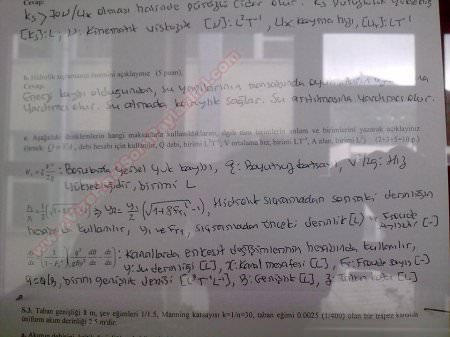 Cevap:
ks > 70ν/u* olması halinde pürüzlü cidar olur. ks pürüzlülük yüksekliği
[ks]: L, ν: Kinematik viskozite [ν]: L²T⁻¹, u* kayma hızı, [u*]: LT⁻¹
b. Hidrolik sıçramanın önemini açıklayınız (5 puan).
Cevap:
Enerji kaybı olduğundan, su yapılarının mansabında oyulmaların
yardımcı olur. Su almada kolaylık sağlar. Su arıtılmasına yardımcı olur.
c. Aşağıdaki denklemlerin hangi maksatlarla kullanıldıklarını, ilgili tüm terimlerin anlam ve birimlerini yazarak açıklayınız
(örnek: Q = VA, debi hesabı için kullanılır, Q debi, birimi L³T⁻¹, V ortalama hız, birimi LT⁻¹, A alan, birimi L²) (2+3+5=10 p.)
: Borularda yersel yük kaybı, ξ: Boyutsuz katsayı, V²/2g: Hız
yüksekliğidir, birimi L
⇒ y2 = y1/2 (√1+8Fr1² -1), Hidrolik sıçramadan sonraki derinliğin
hesabında kullanılır, y1 ve Fr1, sıçramadan önceki derinlik [L] ve Froude
[-]
: Kanallarda enkesit değişimlerinin hesabında kullanılır,
y: Su derinliği [L], x: Kanal mesafesi [L], Fr: Froude sayısı [-]
q=Q/B, birim genişlik debisi [L³T⁻¹L⁻¹], B: Genişlik [L], z: Taban kotu [L]
S.3. Taban genişliği 8 m, şev eğimleri 1/1.5, Manning katsayısı k=1/n=30, taban eğimi 0.0025 (1/400) olan bir trapez kanalda
üniform akım derinliği 2.5 m'dir.